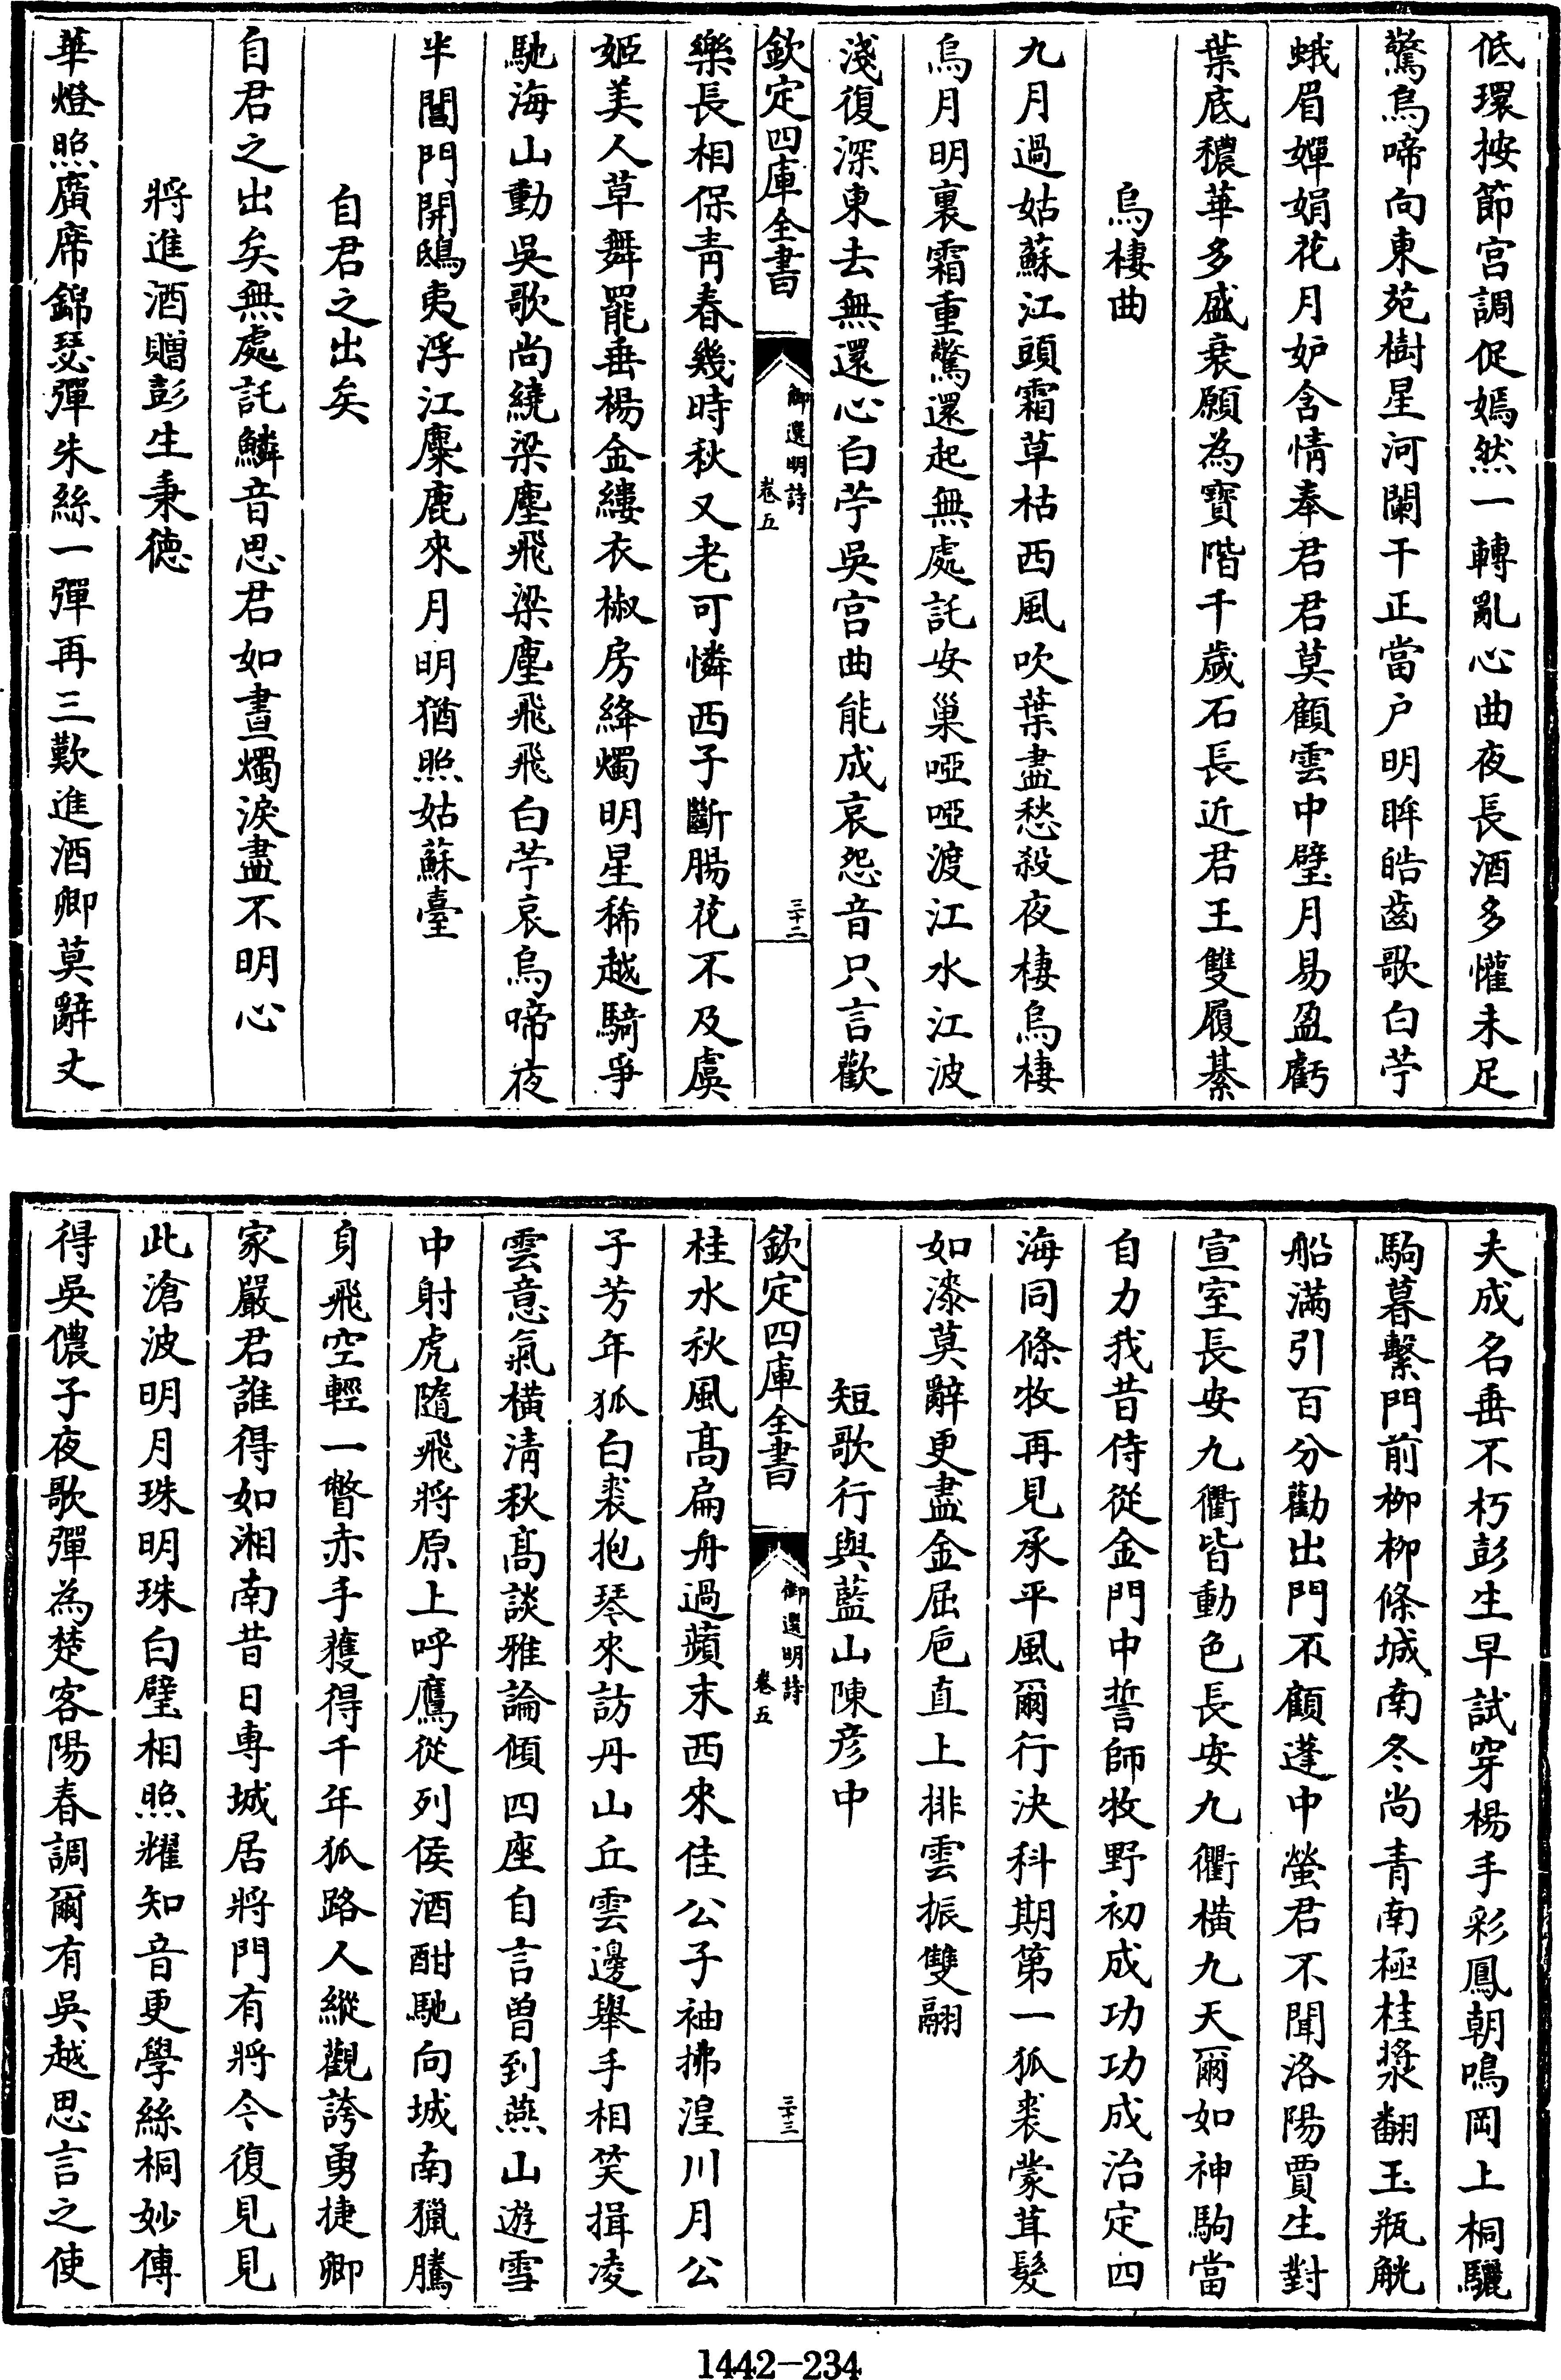 低環按節宮調促嫣然一轉亂心曲夜長酒多懽未足
驚烏啼向東苑樹星河闌干正當户明眸皓齒歌白苧
蛾眉嬋娟花月妒含情奉君君莫顧雲中璧月易盈虧
葉底穠華多盛衰願為寶階千歲石長近君王雙履綦
烏棲曲
九月過姑蘇江頭霜草枯西風吹葉盡愁殺夜棲烏棲
烏月明裏霜重驚還起無處託安巢啞啞渡江水江波
淺復深東去無還心白苧吳宮曲能成哀怨音只言歡
欽定四庫全書
御選明詩
卷五
三十二
樂長相保青春幾時秋又老可憐西子斷腸花不及虞
姬美人草舞罷垂楊金縷衣椒房絳燭明星稀越騎爭
馳海山動吳歌尚繞梁塵飛梁塵飛飛白苧哀烏啼夜
半閶門開鴟夷浮江麋鹿來月明猶照姑蘇臺
自君之出矣
自君之出矣無處託鱗音思君如晝燭淚盡不明心
將進酒贈彭生秉德
華燈照廣席錦瑟彈朱絲一彈再三歎進酒卿莫辭丈
夫成名垂不朽彭生早試穿楊手彩鳳朝鳴岡上桐驪
駒暮繫門前柳柳條城南冬尚青南極桂漿翻玉瓶觥
船滿引百分勸出門不顧蓬中螢君不聞洛陽賈生對
宣室長安九衢皆動色長安九衢橫九天爾如神駒當
自力我昔侍從金門中誓師牧野初成功功成治定四
海同條牧再見承平風爾行決科期第一狐裘蒙茸髮
如漆莫辭更盡金屈卮直上排雲振雙翮
短歌行與藍山陳彥中
欽定四庫全書
御選明詩
卷五
三十三
桂水秋風高扁舟過蘋末西來佳公子袖拂湟川月公
子芳年狐白裘抱琴來訪丹山丘雲邊舉手相笑揖凌
雲意氣橫清秋高談雅論傾四座自言曾到燕山遊雪
中射虎隨飛將原上呼鷹從列侯酒酣馳向城南獵騰
身飛空輕一瞥赤手獲得千年狐路人縱觀誇勇捷卿
家嚴君誰得如湘南昔日專城居將門有將今復見見
此滄波明月珠明珠白璧相照耀知音更學絲桐妙傳
得吳儂子夜歌彈為楚客陽春調爾有吳越思言之使
1442-234